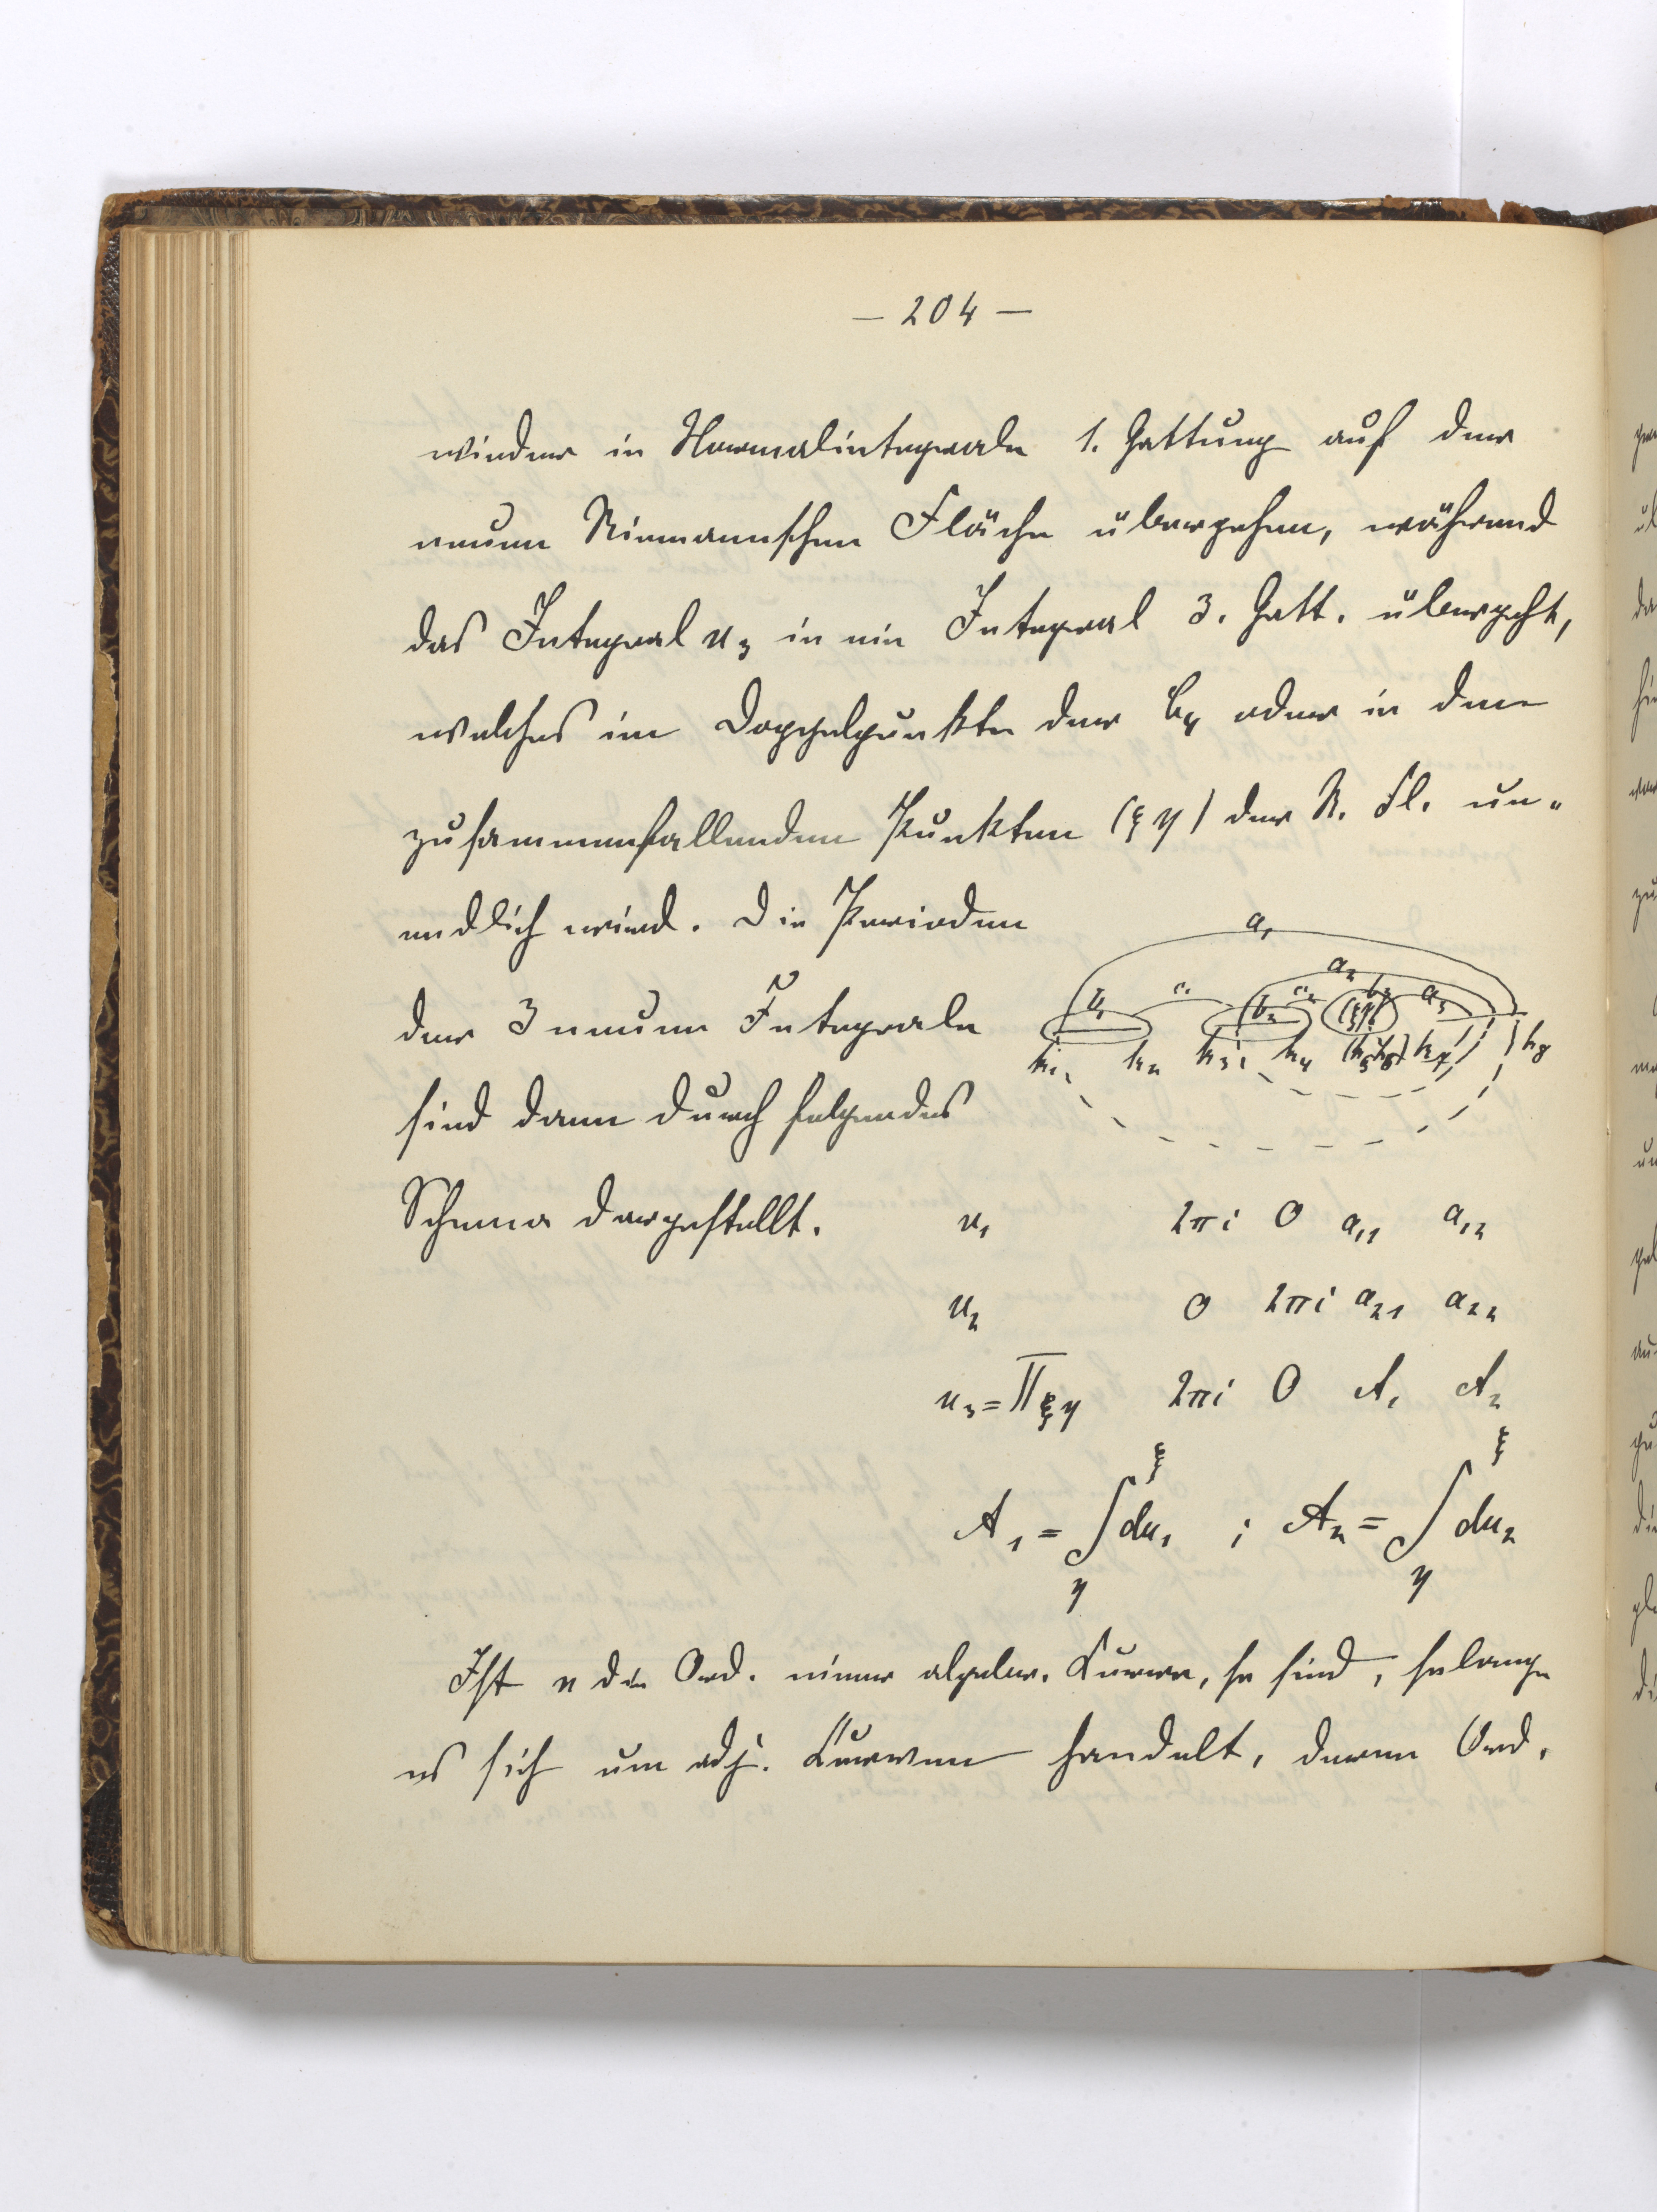 — 204 —
wieder in Normalintegrale 1. Gattung auf der
neuen Riemannschen Fläche übergehen, während
das Integral u₃ in ein Integral 3. Gatt. übergeht,
welches im Doppelpunkte der C₄ oder in den
zusammenfallenden Punkten (ξ η) der R. Fl. un„
endlich wird. Die Perioden
der 3 neuen Integrale
sind dann durch folgendes
Schema dargestellt.
a₁
a₂
b₁ c₁ b₂ c₂ (ξη) b₃ a₃
k₁ k₂ k₃ k₄ (k₅k₆) k₇ k₈
u₁ 2πi 0 a₁₁ a₁₂
u₂ 0 2πi a₂₁ a₂₂
u₃ = Π ξη 2πi 0 A₁ A₂
A₁ = ∫_η^ξ du₁ ; A₂ = ∫_η^ξ du₂
Ist n die Ord. einer algebr. Kurve, so sind, solange
es sich um adj. Kurven handelt, deren Ord.